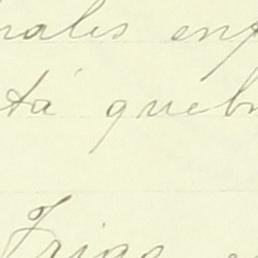 nales enf
tá quebr
Frigo